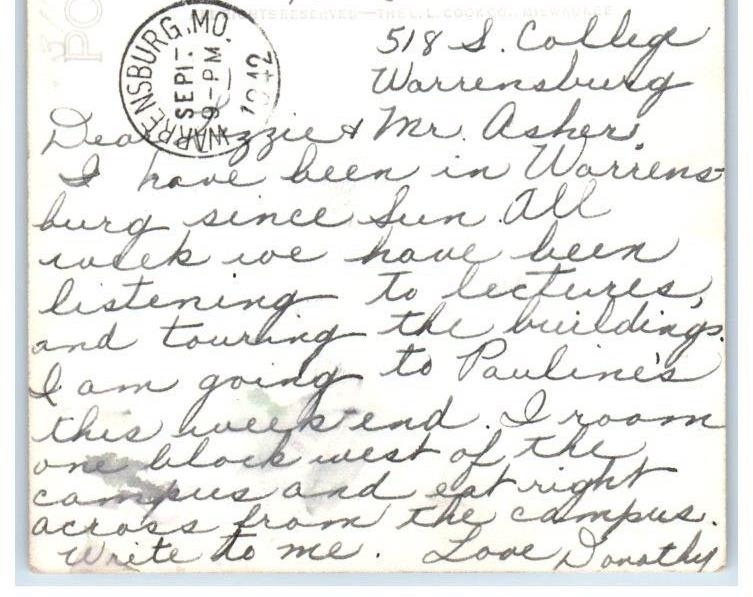 ALL RIGHTS RESERVED—THE L.L. COOK CO., MILWAUKEE
PO
WARRENSBURG, MO.
SEP 17
9-PM
1942
518 S. College
Warrensburg
Dear Lizzie & Mr. Asher,
I have been in Warrens-
burg since Sun. All
week we have been
listening to lectures,
and touring the buildings.
I am going to Pauline's
this week-end. I room
one block west of the
campus and eat right
across from the campus.
Write to me. Love Dorothy